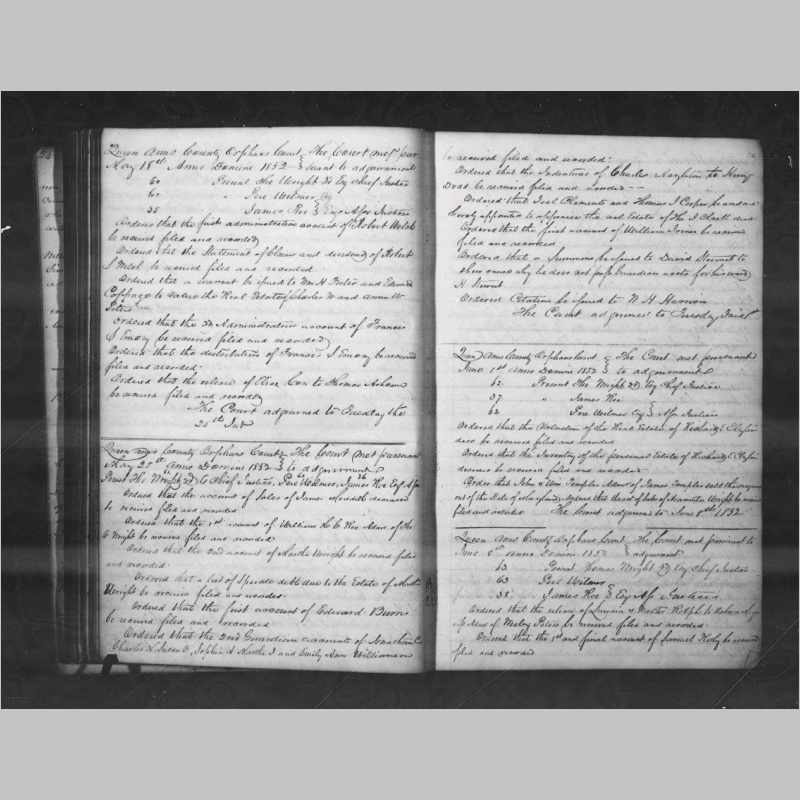 Queen Anns County Orphans Court The Court met pur
May 18th Anno Domini 1852 suant to adjournment
60 Present Tho Wright 3d Esq Chief Justice
60 " Pere Wilmer
35 James Roe Esqr Asso Justices
Ordered that the first administration account of Robert Walsh
be received filed and recorded
Ordered that the Statement of Claim and dividend of Robert
be received filed and recorded
Ordered that a warrant be issued to Wm H and Edward
Coppage to value the Real Estate of Charles W and Anna W
Peters
Ordered that the 3d Administration account of Francis
S Emory be received filed and recorded
Ordered that the distribution of Francis S Emory be received
filed and recorded
Ordered that the release of Cox to Thomas
be received filed and recorded
The Court adjourned to Tuesday the
25th Inst
Queen Anns County Orphans Court The Court met pursuant
May 25th Anno Domini 1852 to adjournment
Present Tho Wright 3d Chief Justice, Pere Wilmer, James Roe Esqr Asso
Ordered that the account of Sales of James Meredith deceased
be received filed and recorded
Ordered that the 1st account of William H C Roe Admr of
Wright be received filed and recorded
Ordered that the 2nd account of Wright be received filed
and recorded
Ordered that a list of Sperate debts due to the Estate of
Wright be received filed and recorded
Ordered that the first account of Edward Burris
be received filed and recorded
Ordered that the 2nd Guardian account of Jonathan
Charles H, Susan E, Sophia A and Emily Ann Williamson
be received filed and recorded
Ordered that the Indenture of Charles to Henry
be received filed and recorded
Ordered that Joel Clements and Thomas S Cooper be and are
hereby appointed to appraise the real Estate of Tho I dec'd
Ordered that the first account of William be received
filed and recorded
Ordered that a Summons be issued to David Stewart to
shew cause why he does not pass Guardian acct for his ward
H Stewart
Ordered Citation be issued to N H Harrison
The Court adjourned to Tuesday
Queen Anns County Orphans Court The Court met pursuant
June 1st Anno Domini 1852 to adjournment
62 Present Tho Wright 3d Esq Chief Justice
37 " James Roe
62 Pere Wilmer Esqr Asso Justices
Ordered that the Valuation of the Real Estate of
decd be received filed and recorded
Ordered that the Inventory of the personal Estate of
deceased be received filed and recorded
Order that John & Wm Temples Admr of James Temples sell the negroes
out of the State of Maryland, Wright be received
filed and recorded The Court adjourned to June 8th 1852
Queen Anns County Orphans Court The Court met pursuant to
June 8th Anno Domini 1852 adjournment
63 Present Thomas Wright 3d Esq Chief Justice
63 Pere Wilmer
38 James Roe Esqr Asso Justices
Ordered that the release of to
Admr of be received filed and recorded
Ordered that the 1st and final account of Samuel be received
filed and recorded